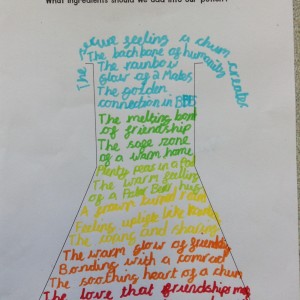 What ingredients should we add into our potion?
The secure feeling a chum creates
The backbone of humanity
The rainbow
glow of 2 Mates
The golden
connection in BFFs
The melting bond
of friendship
The safe zone
of a warm home
Plenty peas in a pod
The warm feeling
of a Polar Bear hug
A frown turned
Feeling uplift like
The caring and sharing
The warm glow of friendship
Bonding with a comrade
The soothing heart of a chum
The love that friendships